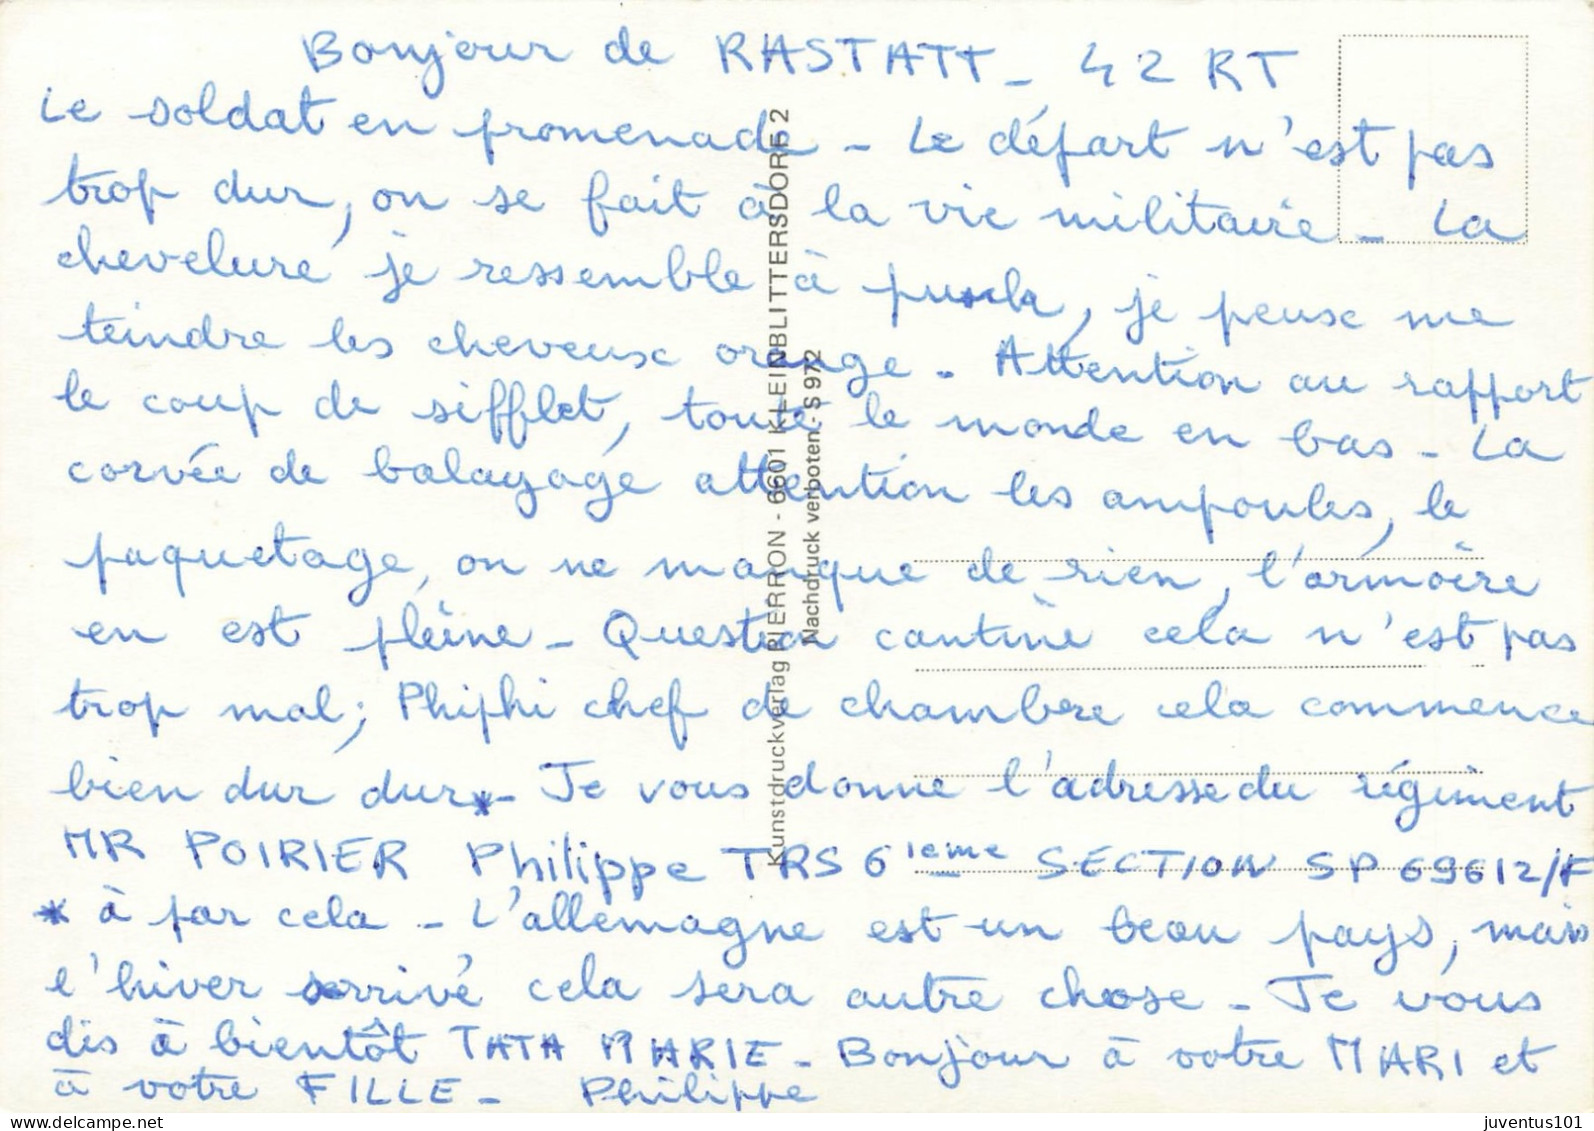 Bonjour de RASTATT - 42 RT
Le soldat en promenade - Le départ n'est pas
trop dur, on se fait à la vie militaire - La
chevelure je ressemble à punk, je peux me
teindre les cheveux orange - Attention au rapport
le coup de sifflet, toute le monde en bas - La
corvée de balayage attention les ampoules, le
paquetage, on ne manque de rien, l'armoire
en est pleine - Question cantine cela n'est pas
trop mal; Phiphi chef de chambre cela commence
bien dur dur*- Je vous donne l'adresse du régiment
MR POIRIER Philippe TRS 6ieme SECTION SP 69612/F
* à par cela - L'allemagne est un beau pays, mais
l'hiver arrivé cela sera autre chose - Je vous
dis à bientôt TATA MARIE - Bonjour à votre MARI et
à votre FILLE - Philippe
Kunstdruckverlag PIERRON - 6601 KLEINBLITTERSDORF 2
Nachdruck verboten - S 972
juventus101